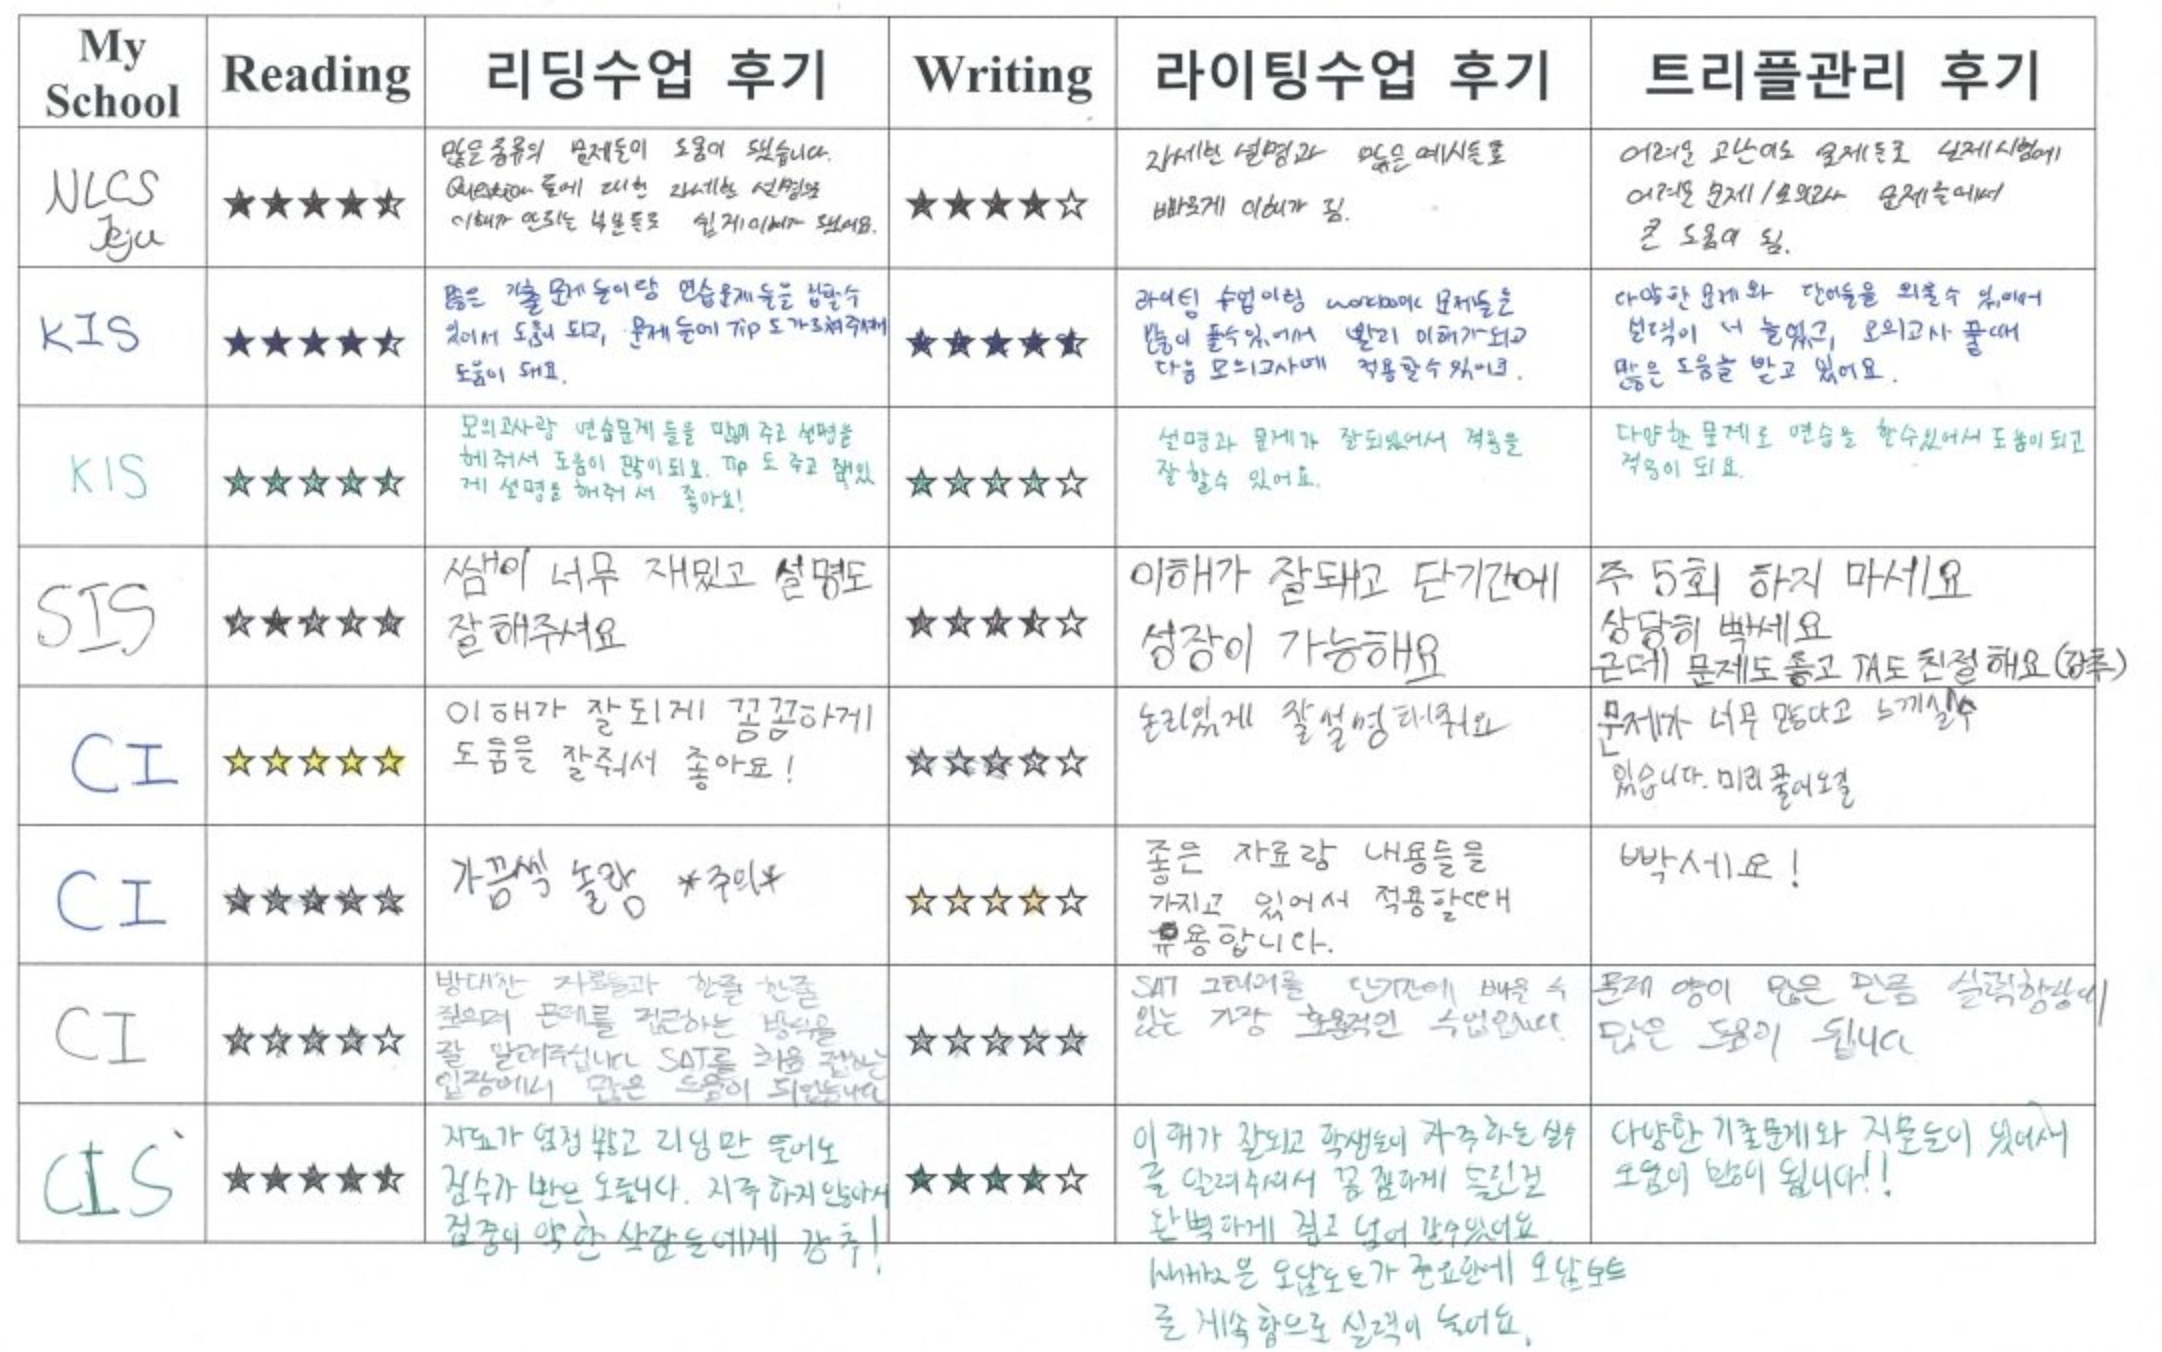 My School
Reading
리딩수업 후기
Writing
라이팅수업 후기
트리플관리 후기
NLCS
Jeju
많은 종류의 문제들이 도움이 됐습니다.
Question 들에 대한 자세한 설명으로
이해가 안되는 부분들도 쉽게 이해가 됐어요.
자세한 설명과 많은 예시들로
빠르게 이해가 됨.
어려운 고난이도 문제들로 실제시험에
어려운 문제/모의고사 문제들에서
큰 도움이 됨.
KIS
많은 기출 문제들이랑 연습문제들을 접할수
있어서 도움이 되고, 문제들에 Tip 도 가르쳐주셔서
도움이 돼요.
라이팅 수업이랑 workbook 문제들을
많이 풀수있어서 빨리 이해가 되고
다음 모의고사에 적용할수 있어요.
다양한 문제와 단어들을 외울수 있어서
실력이 더 늘었고, 모의고사 풀때
많은 도움을 받고 있어요.
KIS
모의고사랑 연습문제 들을 많이 주고 설명을
해줘서 도움이 많이되요. Tip 도 주고 재밌
게 설명을 해줘서 좋아요!
설명과 문제가 잘되있어서 적응을
잘 할수 있어요.
다양한 문제로 연습을 할수있어서 도움이 되고
적응이 되요.
SIS
쌤이 너무 재밌고 설명도
잘해주셔요
이해가 잘돼고 단기간에
성장이 가능해요
주 5회 하지 마세요
상당히 빡세요
근데 문제도 좋고 TA도 친절해요(강추)
CI
이해가 잘되게 꼼꼼하게
도움을 잘줘서 좋아요!
논리있게 잘설명해줘요
문제가 너무 많다고 느끼실수
있습니다. 미리 풀어오길
CI
가끔씩 놀람 *주의*
좋은 자료랑 내용들을
가지고 있어서 적용할때
유용합니다.
빡세요!
CI
방대한 자료들과 한줄 한줄
짚으며 문제를 접근하는 방식을
잘 알려주십니다 SAT를 처음 접하는
입장에서 많은 도움이 되었습니다
SAT 그래머를 단기간에 배울 수
있는 가장 효율적인 수업입니다
문제 양이 많은 만큼 실력향상에
많은 도움이 됩니다
CIS
자료가 엄청 많고 리딩만 들어도
점수가 반은 오릅니다. 지루하지 않아서
집중이 약한 사람들에게 강추!
이해가 잘되고 학생들이 자주하는 실수
를 알려주셔서 꼼꼼하게 틀린걸
완벽하게 짚고 넘어 갈수있어요
오답노트가 중요한데 오답노트
를 계속 함으로 실력이 늘어요.
다양한 기출문제와 지문들이 있어서
도움이 많이 됩니다!!